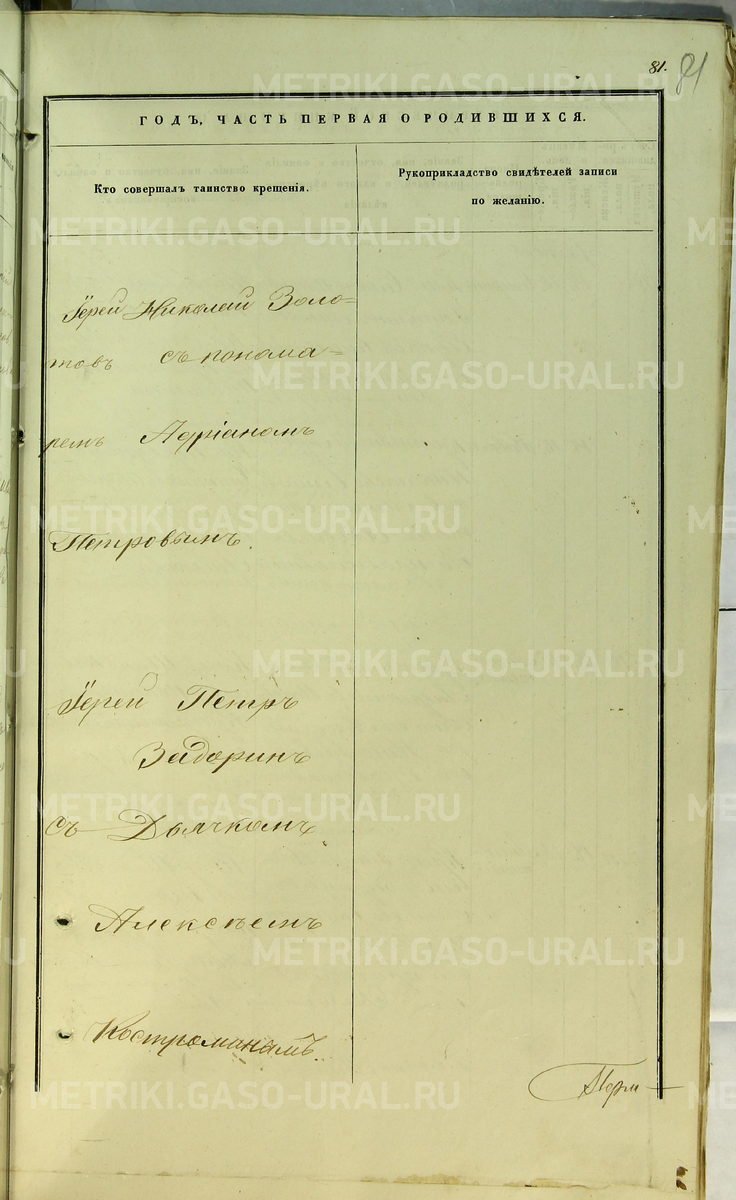 81.
81
ГОДЪ, ЧАСТЬ ПЕРВАЯ О РОДИВШИХСЯ.
Кто совершалъ таинство крещенія.
Рукоприкладство свидѣтелей записи
по желанію.
Іерей Николай Золо=
товъ съ понома=
ремъ Адріаномъ
Петровымъ.
Іерей Петръ
Задоринъ
съ Дьячкомъ
Алексѣемъ
Костроманамъ.
Перм
METRIKI.GASO-URAL.RU